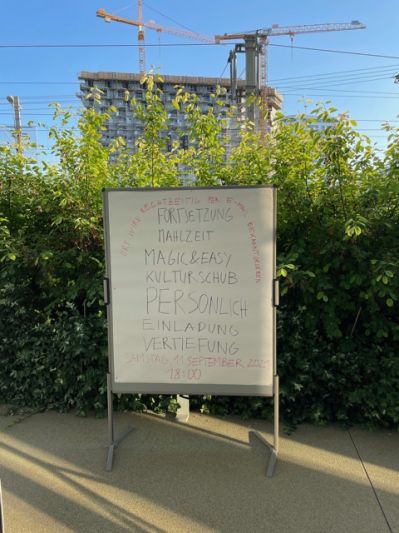 ORT WIRD RECHTZEITIG PER E-MAIL BEKANNTGEGEBEN
FORTSETZUNG
MAHLZEIT
MAGIC&EASY
KULTURSCHUB
PERSÖNLICH
EINLADUNG
VERTIEFUNG
SAMSTAG, 11 SEPTEMBER 2021
18:00